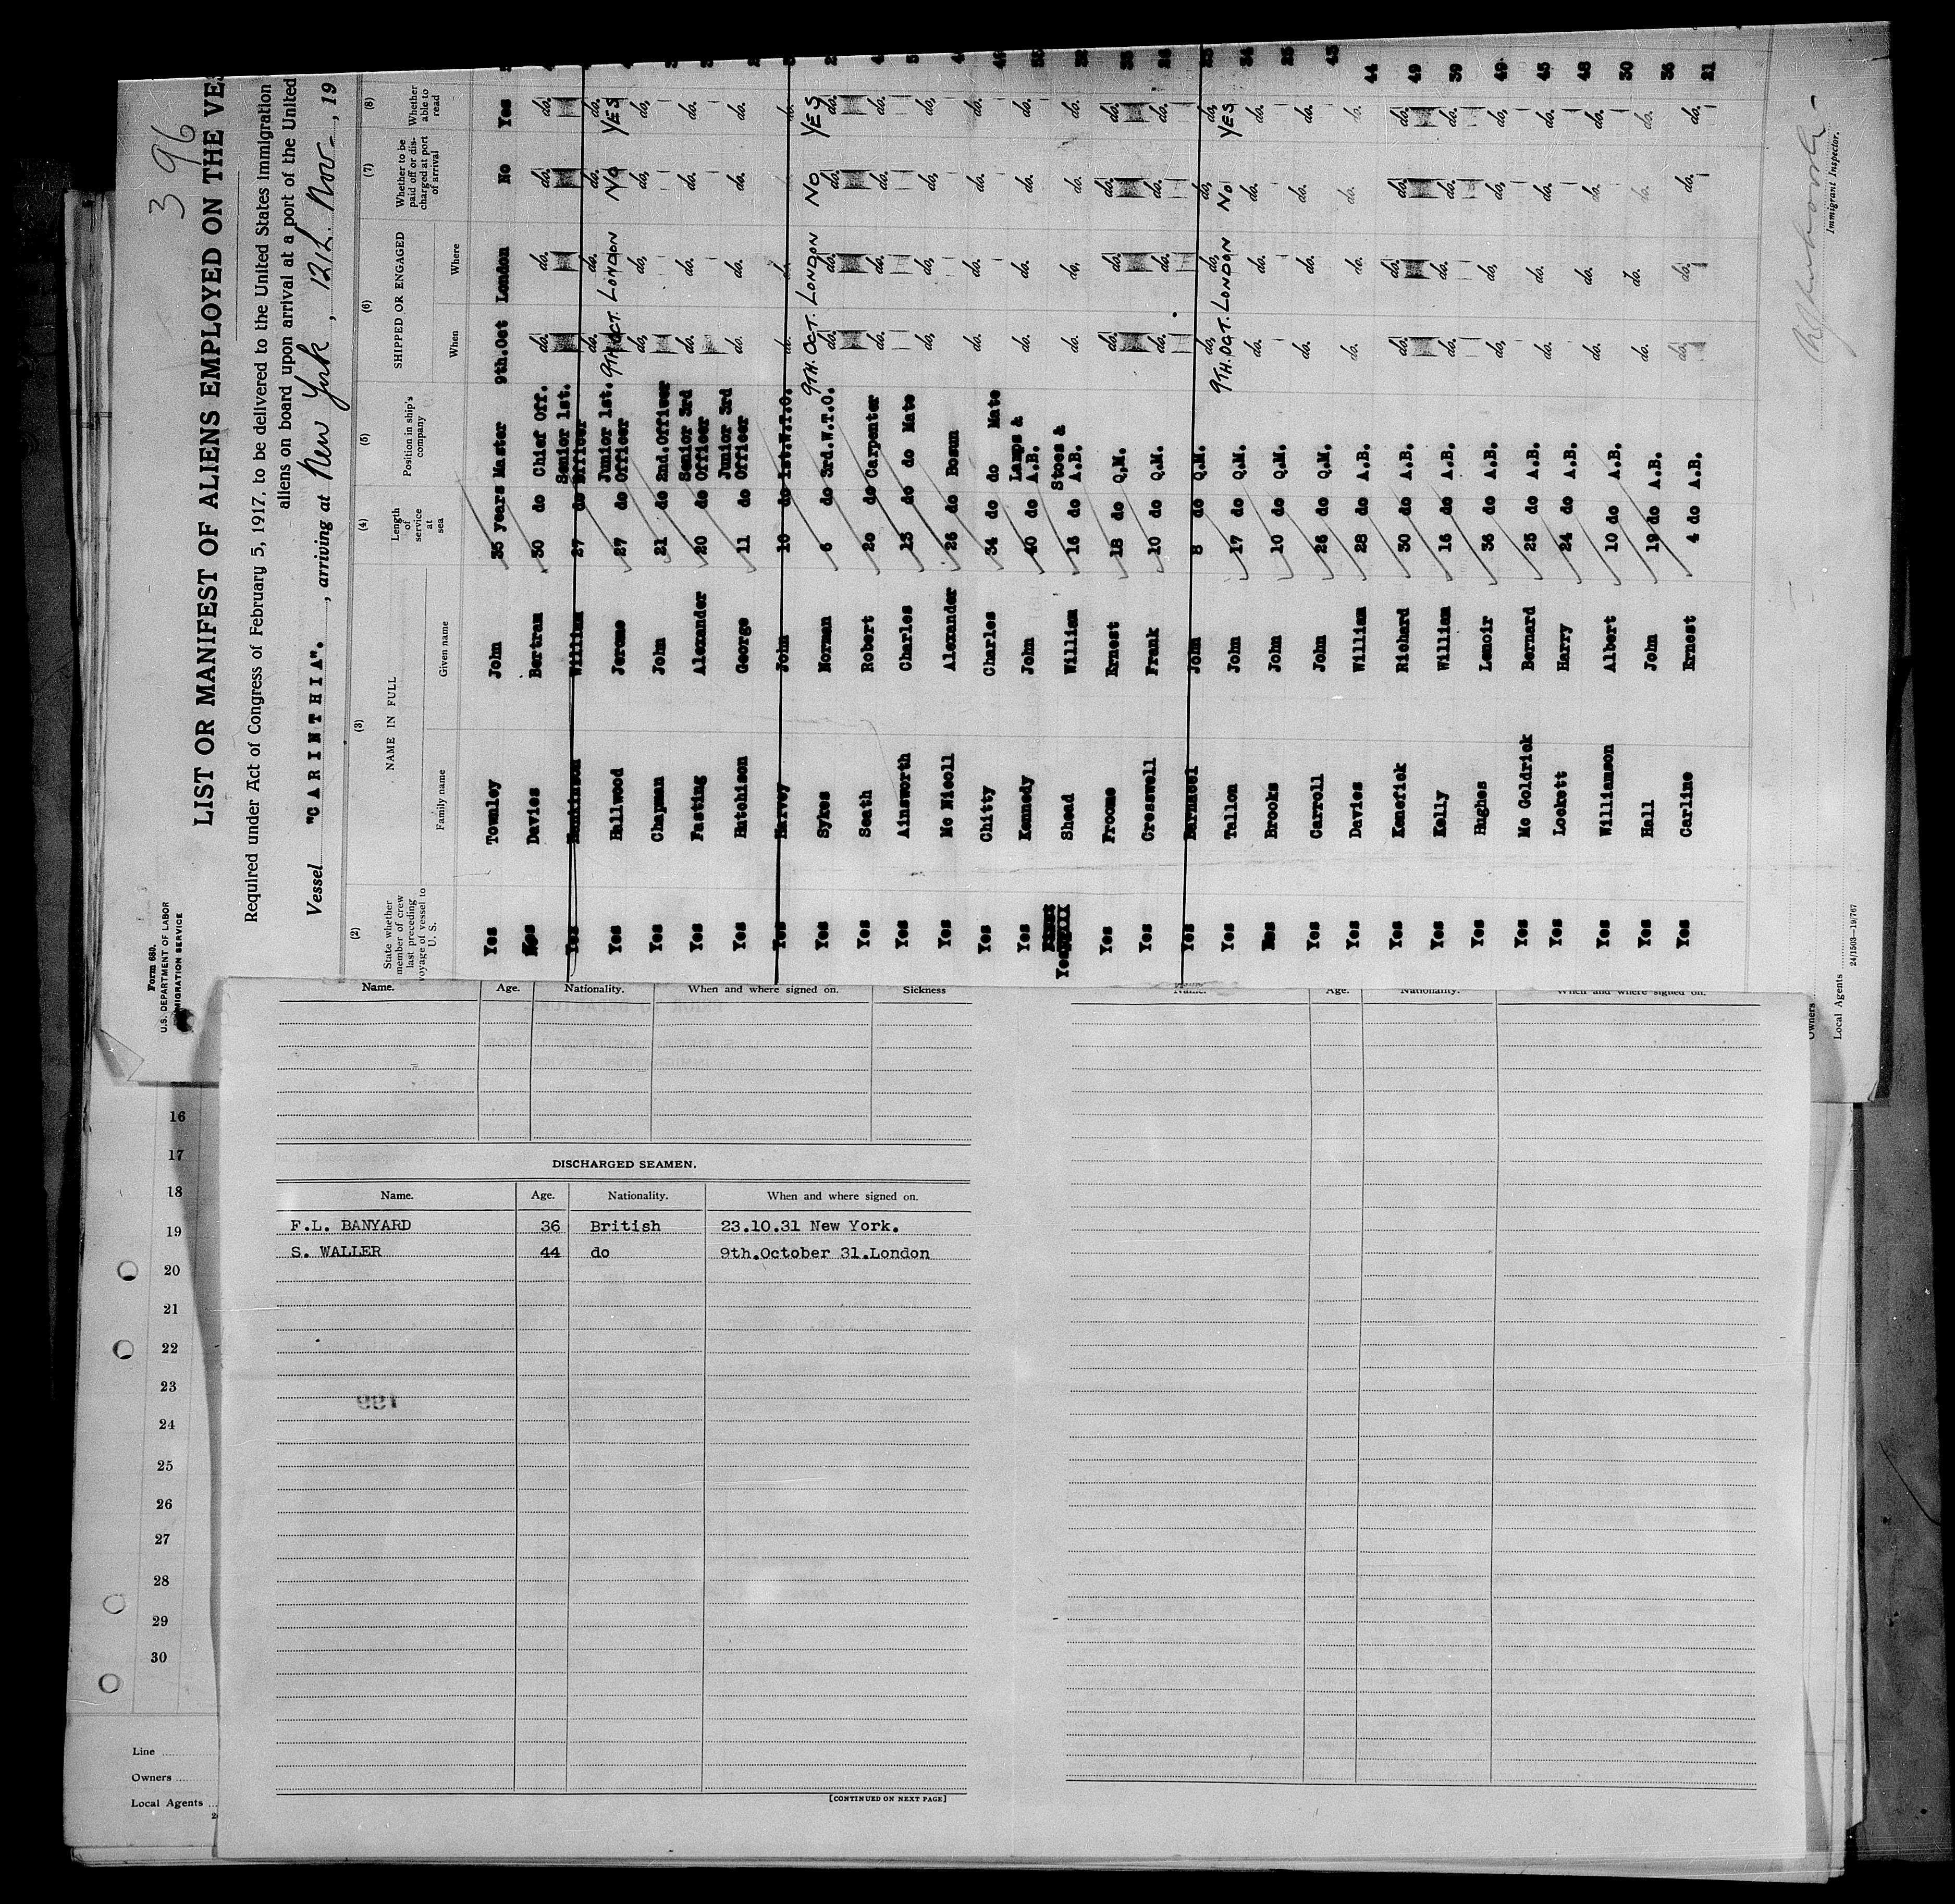 3 96
Form 680.
U.S. DEPARTMENT OF LABOR
IMMIGRATION SERVICE
LIST OR MANIFEST OF ALIENS EMPLOYED ON THE
Required under Act of Congress of February 5, 1917, to be delivered to the United States immigration
aliens on board upon arrival at a port of the United
Vessel "CARINTHIA". , arriving at New York , 12th. Nov- , 19
(2) (3) (4) (5) (6) (7) (8)
State whether member of crew last preceding voyage of vessel to U. S. NAME IN FULL Length of service at sea Position in ship's company SHIPPED OR ENGAGED Whether to be paid off or discharged at port of arrival Whether able to read
Family name Given name When Where
Yes Townley John 35 years Master 9th.Oct London No Yes
Davies Bertram 30 do Chief Off. do. do. do. do.
Yes William 27 do Senior 1st. Officer do. do. do. do.
Yes Hallwood Jerome 27 do Junior 1st. Officer 9TH OCT. LONDON NO YES
Yes Chapman John 21 do 2nd.Officer do. do. do. do.
Yes Fasting Alexander 20 do Senior 3rd Officer do. do. do. do.
Yes Hutchison George 11 do Junior 3rd Officer do. do. do. do.
Yes Harvey John 10 do 1st.W.T.O. do. do. do. do.
Yes Sykes Norman 6 do 3rd.W.T.O. 9TH. OCT. LONDON NO YES
Yes Seath Robert 20 do Carpenter do. do. do. do.
Yes Ainsworth Charles 15 do do Mate do. do. do. do.
Yes Mc Nicoll Alexander 26 do Bosun do. do. do. do.
Yes Chitty Charles 34 do do Mate do. do. do. do.
Yes Kennedy John 40 do Lamps & A.B. do. do. do. do.
Yes Shead William 16 do Stoes & A.B. do. do. do. do.
Yes Froome Ernest 18 do Q.M. do. do. do. do.
Yes Cresswell Frank 10 do Q.M. do. do. do. do.
Yes John 8 do Q.M. do. do. do. do.
Yes Tallon John 17 do Q.M. 9TH. OCT. LONDON NO YES
Brooks John 10 do Q.M. do. do. do. do.
Yes Carroll John 26 do Q.M. do. do. do. do.
Yes Davies William 28 do A.B. do. do. do. do. 44
Yes Kenefick Richard 30 do A.B. do. do. do. do. 49
Yes Kelly William 16 do A.B. do. do. do. do. 39
Yes Hughes Lenoir 36 do A.B. do. do. do. do. 49
Yes Mc Goldrick Bernard 25 do A.B. do. do. do. do. 45
Yes Lockett Harry 24 do A.B. do. do. do. do. 48
Yes Williamson Albert 10 do A.B. do. do. do. do. 30
Yes Hall John 19 do A.B. do. do. do. do. 36
Yes Carline Ernest 4 do A.B. do. do. do. do. 21
Immigrant Inspector.
Owners
Local Agents
24/1503—19/767
Name. Age. Nationality. When and where signed on. Sickness
Name. Age. Nationality. When and where signed on.
DISCHARGED SEAMEN.
Name. Age. Nationality. When and where signed on.
F.L. BANYARD 36 British 23.10.31 New York.
S. WALLER 44 do 9th.October 31.London
[CONTINUED ON NEXT PAGE]
16
17
18
19
20
21
22
23
24
25
26
27
28
29
30
Line
Owners
Local Agents